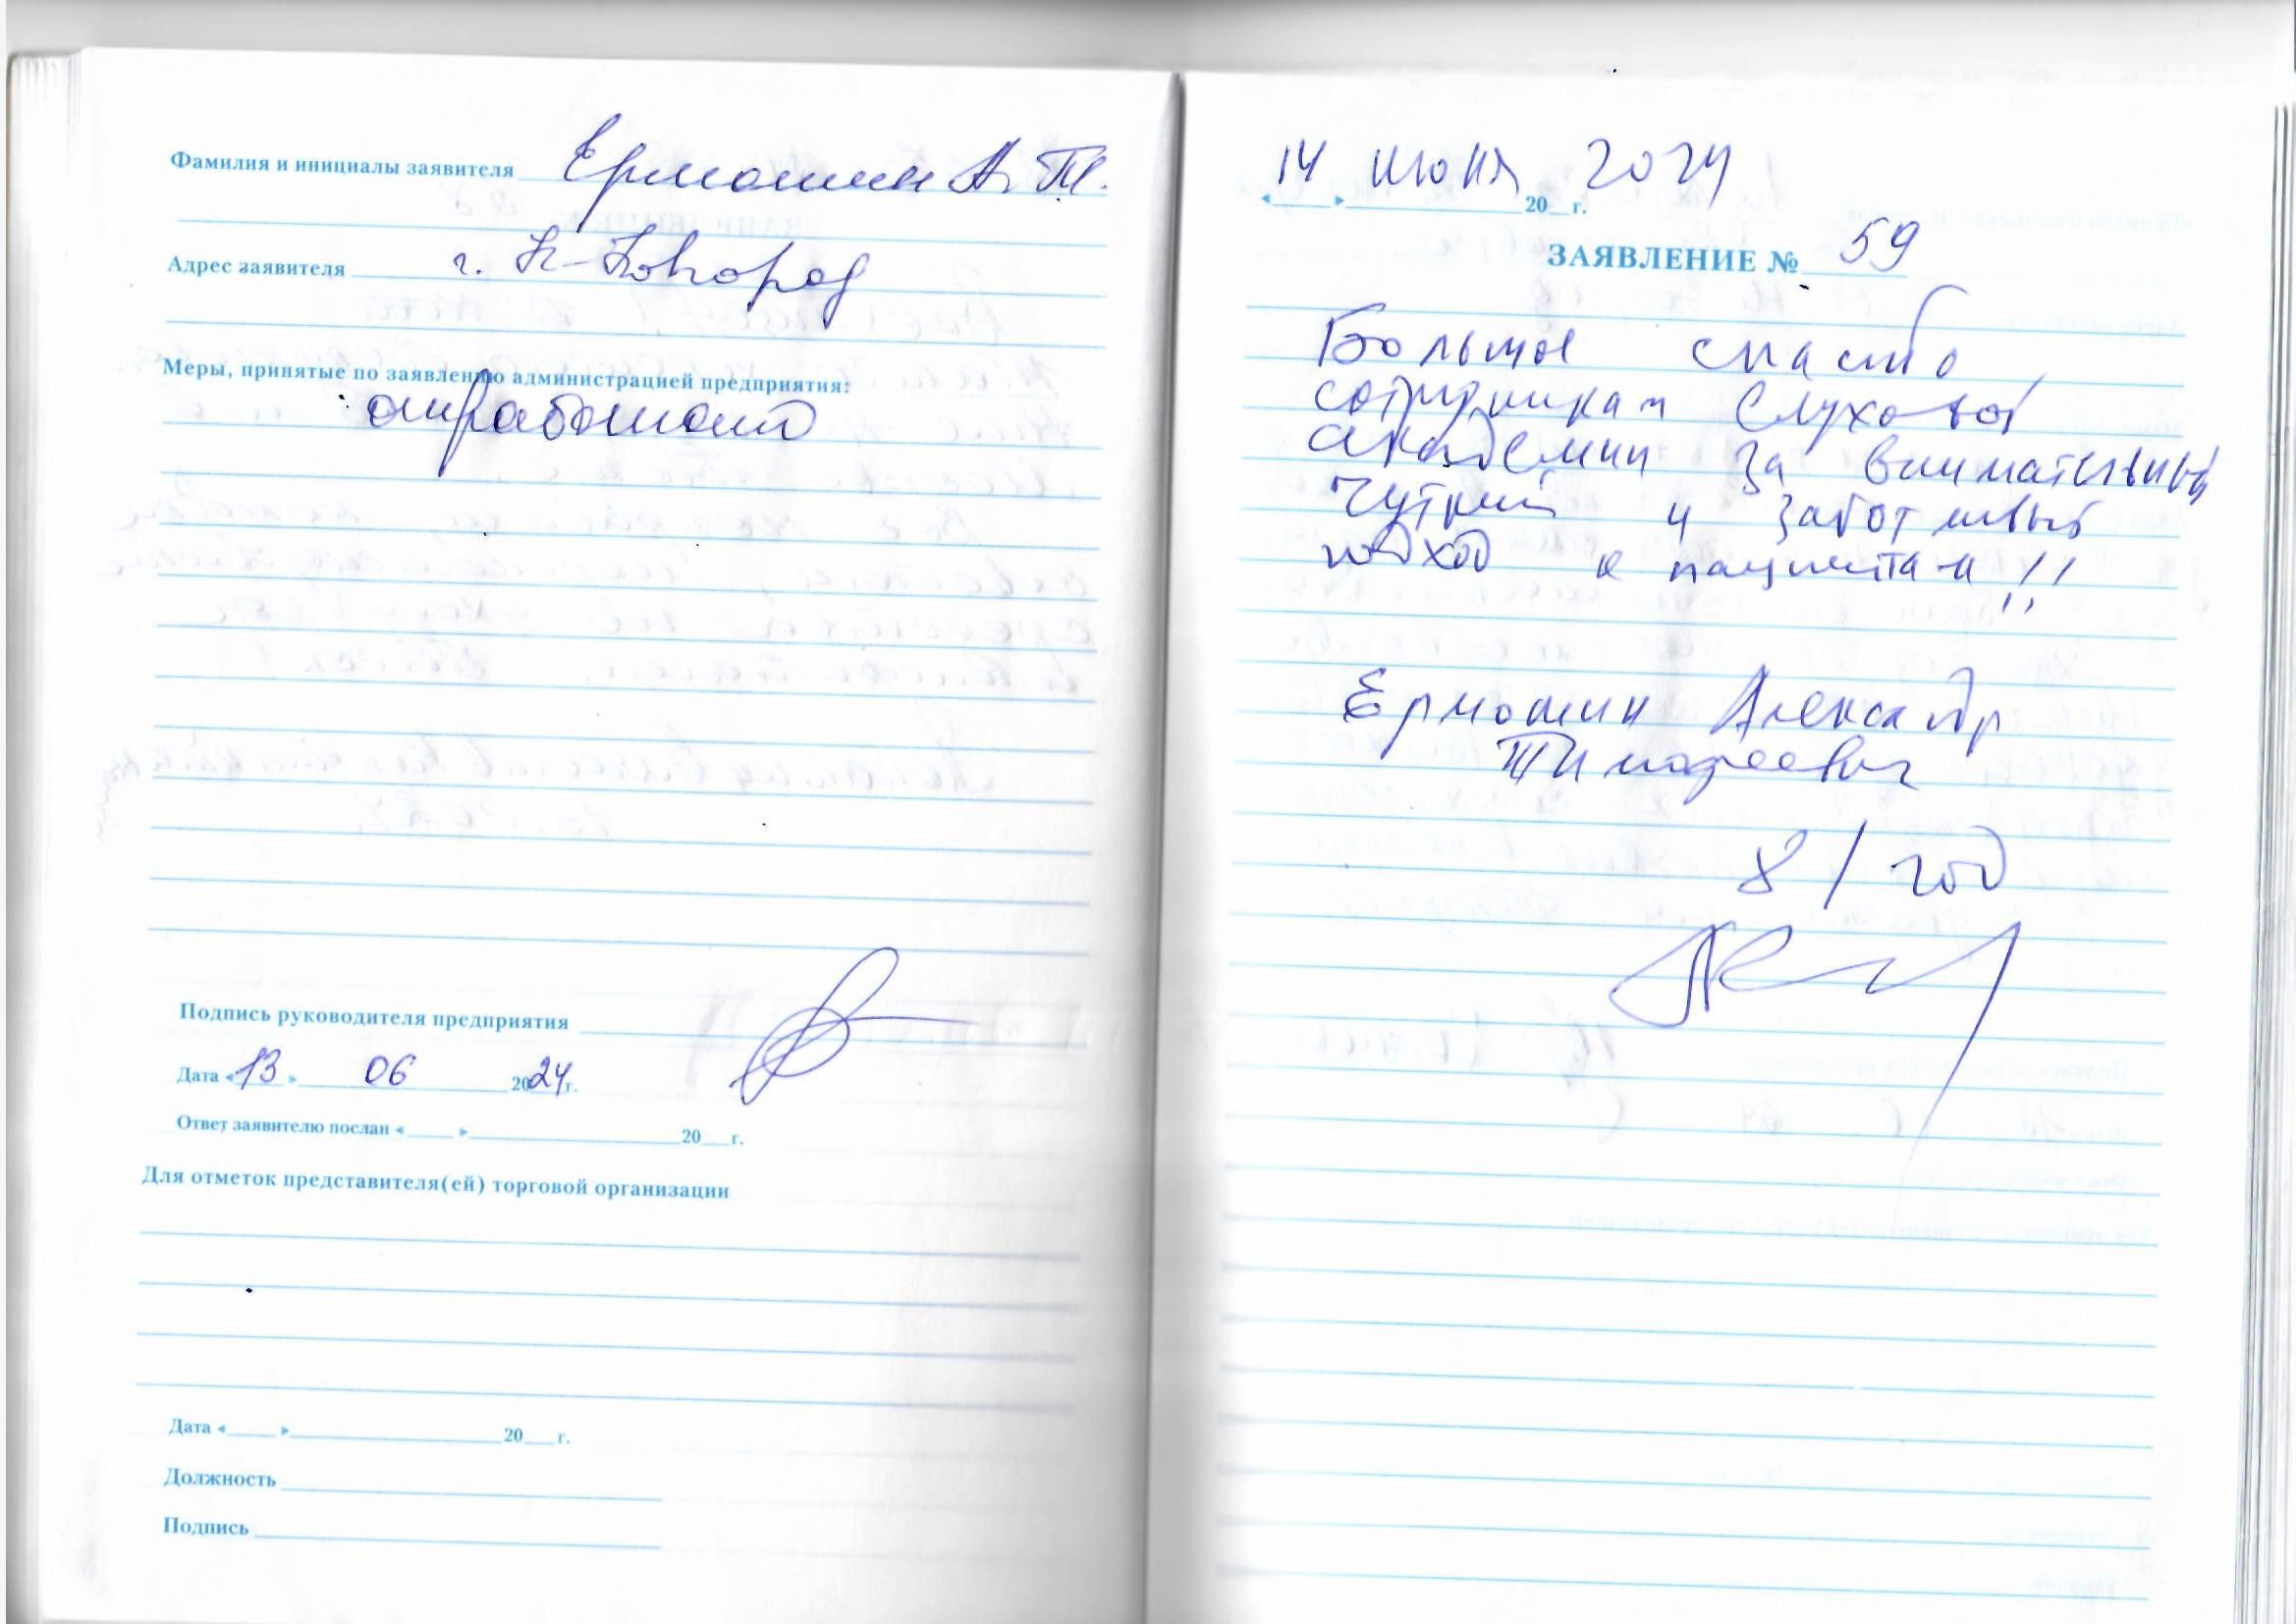 Фамилия и инициалы заявителя Ермошин А. Т.
Адрес заявителя г. Н-Новгород
Меры, принятые по заявлению администрацией предприятия:
отработано
Подпись руководителя предприятия
Дата «13» 06 2024г.
Ответ заявителю послан «___» ___ 20__г.
Для отметок представителя(ей) торговой организации
Дата «___» ___ 20__г.
Должность
Подпись
14 июня 2024
«___» ___ 20__г.
ЗАЯВЛЕНИЕ № 59
Большое спасибо
сотрудникам Слуховой
Академии за внимательный,
чуткий и заботливый
подход к пациентам!!
Ермошин Александр
Тимофеевич
81 год